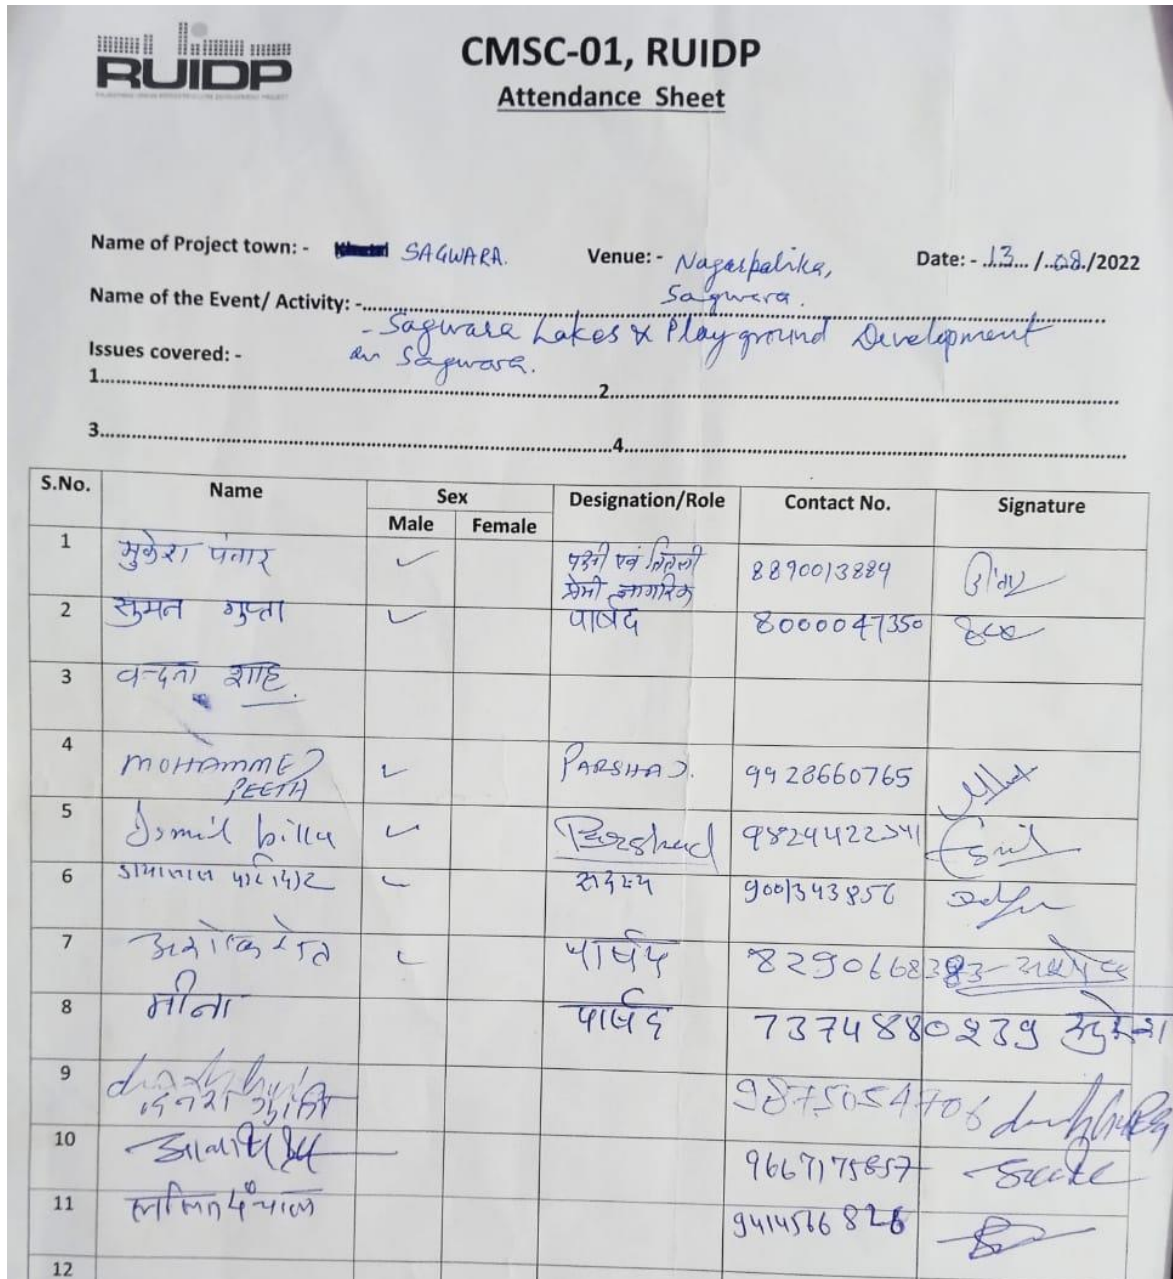 RUIDP
CMSC-01, RUIDP
Attendance Sheet
Name of Project town: - SAGWARA.
Venue: - Nagarpalika,
Sagwara.
Date: - 13 /.08./2022
Name of the Event/ Activity: -
- Sagwara Lakes & Playground Development
in Sagwara.
Issues covered: -
1 2
3 4
S.No. Name Sex Designation/Role Contact No. Signature
Male Female
1 मुकेश पंवार ✓ पक्षी एवं तितली
प्रेमी नागरिक 8890013884
2 सुमन गुप्ता ✓ पार्षद 8000047350
3 वन्दना शाह.
4 MOHAMMED
PEETH ✓ PARSHAD. 9928660765
5 Ismil billa ✓ Parshad
6 ✓ सदस्य 9001343856
7 ✓ पार्षद
8 मीना पार्षद 7374880239
9 9875054706
10 9667175857
11 ललित पंचाल 9414566826
12